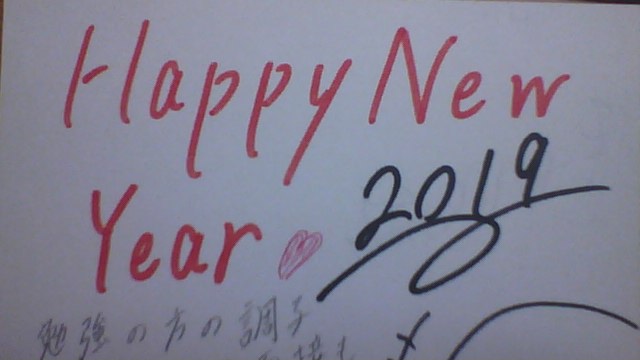 Happy New
2019
Year
勉強の方の調子